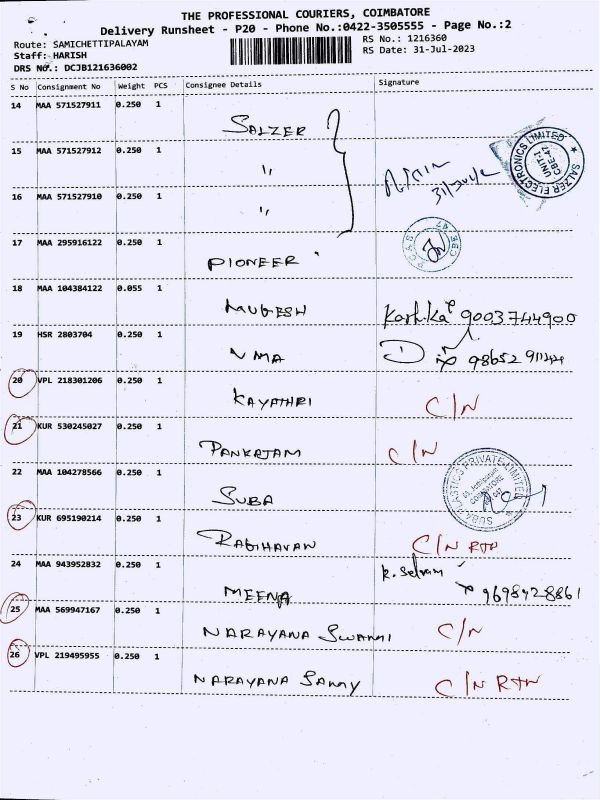 THE PROFESSIONAL COURIERS, COIMBATORE
Delivery Runsheet - P20 - Phone No.:0422-3505555 - Page No.:2
Route: SAMICHETTIPALAYAM
RS No.: 1216360
Staff: HARISH
RS Date: 31-Jul-2023
DRS No.: DCJB121636002
S No Consignment No Weight PCS Consignee Details Signature
14 MAA 571527911 0.250 1 SALZER
15 MAA 571527912 0.250 1 "
SALZER ELECTRONICS LIMITED UNIT-1 CBE-47
16 MAA 571527910 0.250 1 "
17 MAA 295916122 0.250 1 PIONEER
18 MAA 104384122 0.055 1 MUGESH 9003744900
19 HSR 2803704 0.250 1 UMA
20 VPL 218301206 0.250 1 KAYATHRI C/N
21 KUR 530245027 0.250 1 PANKAJAM C/N
22 MAA 104278566 0.250 1 SUBA
SUBA PLASTICS PRIVATE LIMITED COIMBATORE
23 KUR 695190214 0.250 1 RAGHAVAN C/N RTN
24 MAA 943952832 0.250 1 MEENA K. Selvam 9698928861
25 MAA 569947167 0.250 1 NARAYANA SWAMI C/N
26 VPL 219495955 0.250 1 NARAYANA SAMY C/N RTN